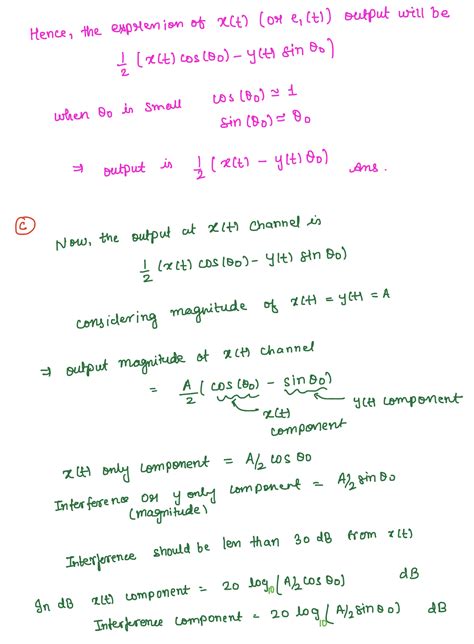 Hence, the expression of x(t) (or e₁(t)) output will be
1/2 [x(t) cos(θ₀) - y(t) sin θ₀)
when θ₀ is small cos(θ₀) ≃ 1
sin(θ₀) ≃ θ₀
⇒ output is 1/2 (x(t) - y(t) θ₀) Ans.
(c)
Now, the output at x(t) channel is
1/2 (x(t) cos(θ₀) - y(t) sin θ₀)
considering magnitude of x(t) = y(t) = A
⇒ output magnitude at x(t) channel
= A/2 (cos(θ₀) - sin θ₀)
x(t) component
y(t) component
x(t) only component = A/2 cos θ₀
Interference or y only component = A/2 sin θ₀
(magnitude)
Interference should be less than 30 dB from x(t)
In dB x(t) component = 20 log₁₀ (A/2 cos θ₀) dB
Interference component = 20 log₁₀ (A/2 sin θ₀) dB